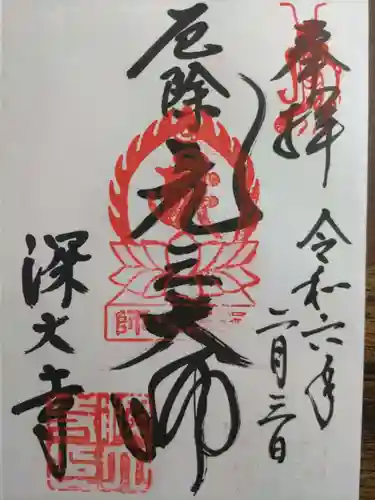 奉拝
令和六年
二月三日
厄除
元三大師
深大寺